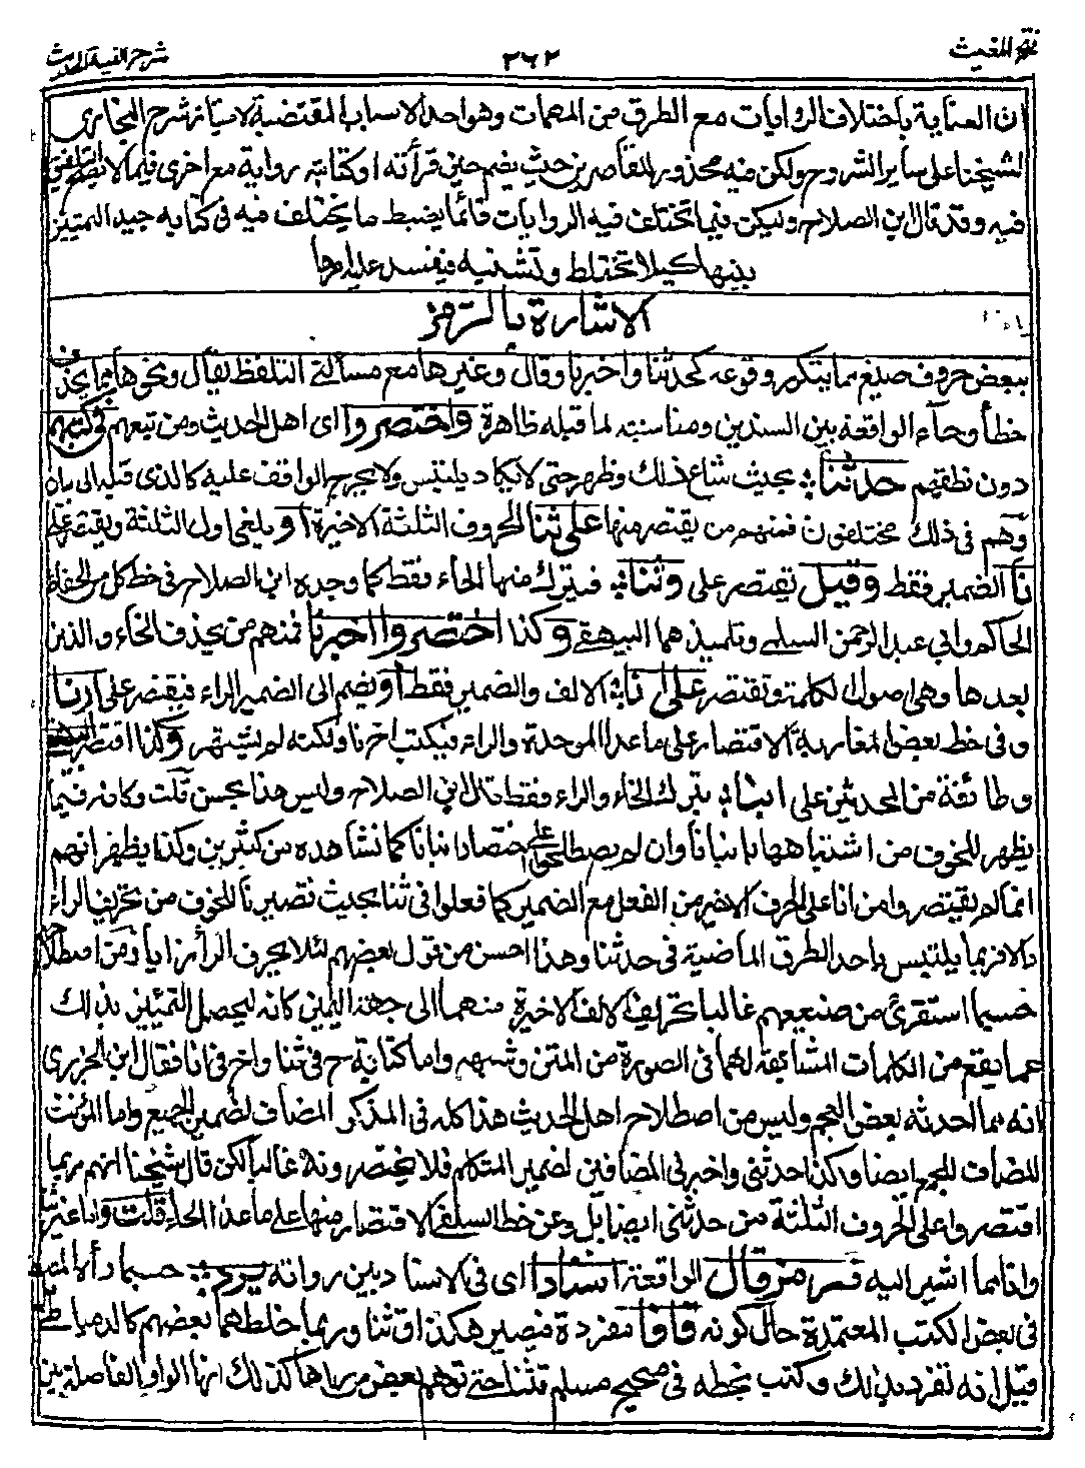 فتح المغيث ٢٦٢ شرح الفية الحديث
ان العناية باختلاف الروايات مع الطرق من المهمات وهو احد الاسباب المقتضية لامتياز شرح البخاري
لشيخنا على ساير الشروح ولكن فيه محذور للقاصرين حيث يضم حين قرأته اوكتابته رواية مع اخرى فيما لا يصح التلفيق
فيه وقد قال ابن الصلاح وليكن فيما تختلف فيه الروايات قائما يضبط ما يختلف فيه في كتابه جيد التمييز
بينها كيلا تختلط وتشتبه فيفسد عليه امرها
الاشارة بالرمز
ببعض حروف صيغ مما يتكرر وقوعه كحدثنا واخبرنا وقال وغيرها مع مسألتي التلفظ بقال ونحوها مما يحذف
خطأ وحآء الواقعة بين السندين ومناسبته لما قبله ظاهرة واختصروا اى اهل الحديث ومن تبعهم في كتبهم
دون نطقهم حدثنا بحيث شاع ذلك وظهر حتى لا يكاد يلتبس ولا يحوج الواقف عليه كالذى قبله الى بيان
وهم في ذلك مختلفون فمنهم من يقتصر منها على ثنا الحروف الثلثة الاخيرة او يلغى اول الثلثة ويقتصر على
نا الضمير فقط وقيل يقتصر على دثنا فيترك منها الحاء فقط كما وجده ابن الصلاح في خط كل من الحفاظ
الحاكم وابي عبد الرحمن السلمي وتلميذهما البيهقي وكذا اختصروا اخبرنا فمنهم من يحذف الخاء والذين
بعدها وهي اصول الكلمة ويقتصر على انا الالف والضمير فقط او يضم الى الضمير الراء فيقتصر على ارنا
وفي خط بعض المغاربة الاقتصار على ما عدا الموحدة والراء فيكتب اخنا ولكنه لم يشتهر وكذا اقتصر البيهقي
وطائفة من المحدثين على ابنا بترك الخاء والراء فقط قال ابن الصلاح وليس هذا بحسن قلت وكانه فيما
يظهر للخوف من اشتباهها بانبانا وان لم يصطلحوا على اختصار انبانا كما نشاهده من كثيرين وكذا يظهر انهم
انما لم يقتصروا من انا على الحرف الاخير من الفعل مع الضمير كما فعلوا في ثنا بحيث تصير نا للخوف من تحريف الراء
دالا فربما يلتبس باحد الطرق الماضية في حدثنا وهذا احسن من قول بعضهم لئلا يحرف الرأ زايا
حسبما استقرئ من صنيعهم غالبا تحريف الالف الاخيرة منهما الى جهة اليمين كانه ليحصل التمييز بذلك
عما يقع من الكلمات المشابهة لهما في الصورة من المتن وشبهه واما كتابة ح في ثنا واخ في انا فقال ابن الجزري
انه مما احدثه بعض العجم وليس من اصطلاح اهل الحديث هذا كله في المذكر المضاف لضمير الجميع واما المؤنث
المضاف للجمع ايضا وكذا حدثني واخبرني المضافين لضمير المتكلم فلا يختصرونه غالبا لكن قال شيخنا انهم ربما
اقتصروا على الحروف الثلثة من حدثني ايضا بل وعن خط السلفي الاقتصار منها على ما عدا الحاء قلت
واما ما اشير اليه فرمز قال الواقعة اسنادا اى في الاسناد بين رواته يرد حسبما رأه
في بعض الكتب المعتمدة حال كونه قافا مفردة فيصير هكذا ق ثنا وربما خلطهما بعضهم كالدمياطي
قيل انه تفرد بذلك وكتب بخطه في صحيح مسلم قثنا حتى توهم بعض من رآها كذلك انها الواو الفاصلة بين